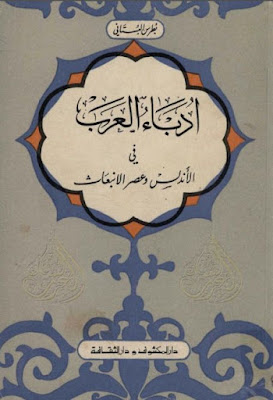 بطرس البستاني
أدباء العرب
في
الأندلس وعصر الانبعاث
دار المكشوف و دار الثقافة